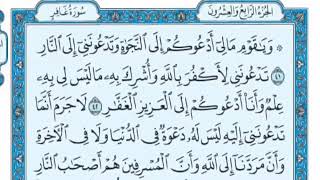 الجزء الرابع والعشرون سورة غافر
۞ وَيَـٰقَوْمِ مَا لِىٓ أَدْعُوكُمْ إِلَى ٱلنَّجَوٰةِ وَتَدْعُونَنِىٓ إِلَى ٱلنَّارِ
٤١ تَدْعُونَنِى لِأَكْفُرَ بِٱللَّهِ وَأُشْرِكَ بِهِۦ مَا لَيْسَ لِى بِهِۦ
عِلْمٌ وَأَنَا۠ أَدْعُوكُمْ إِلَى ٱلْعَزِيزِ ٱلْغَفَّـٰرِ ٤٢ لَا جَرَمَ أَنَّمَا
تَدْعُونَنِىٓ إِلَيْهِ لَيْسَ لَهُۥ دَعْوَةٌ فِى ٱلدُّنْيَا وَلَا فِى ٱلْـَٔاخِرَةِ
وَأَنَّ مَرَدَّنَآ إِلَى ٱللَّهِ وَأَنَّ ٱلْمُسْرِفِينَ هُمْ أَصْحَـٰبُ ٱلنَّارِ